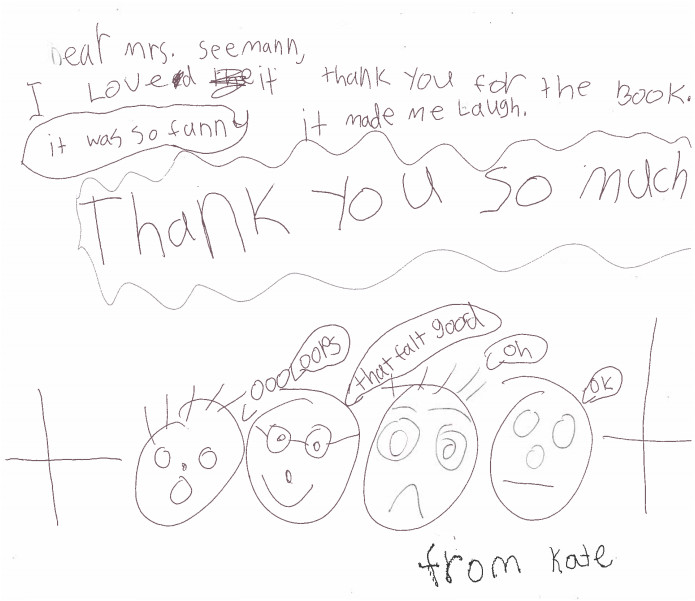 Dear mrs. seemann,
I LOVEd it thank you for the Book.
it was so funny it made me Laugh.
Thank You so much
oooloops that falt good oh ok
from Kate